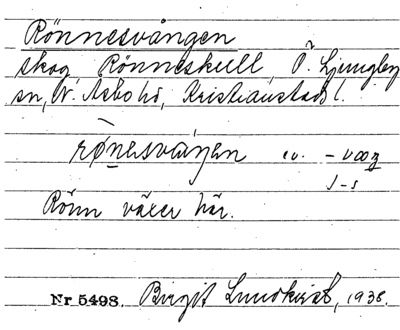 Rönnesvången
skog, Rönneskull, Ö. Ljungby
sn, N. Åsbo hd, Kristianstad l.
rønesvaŋen ev. -vooŋ
Rönn växer här.
Nr 5498. Birgit Lundkvist, 1938.